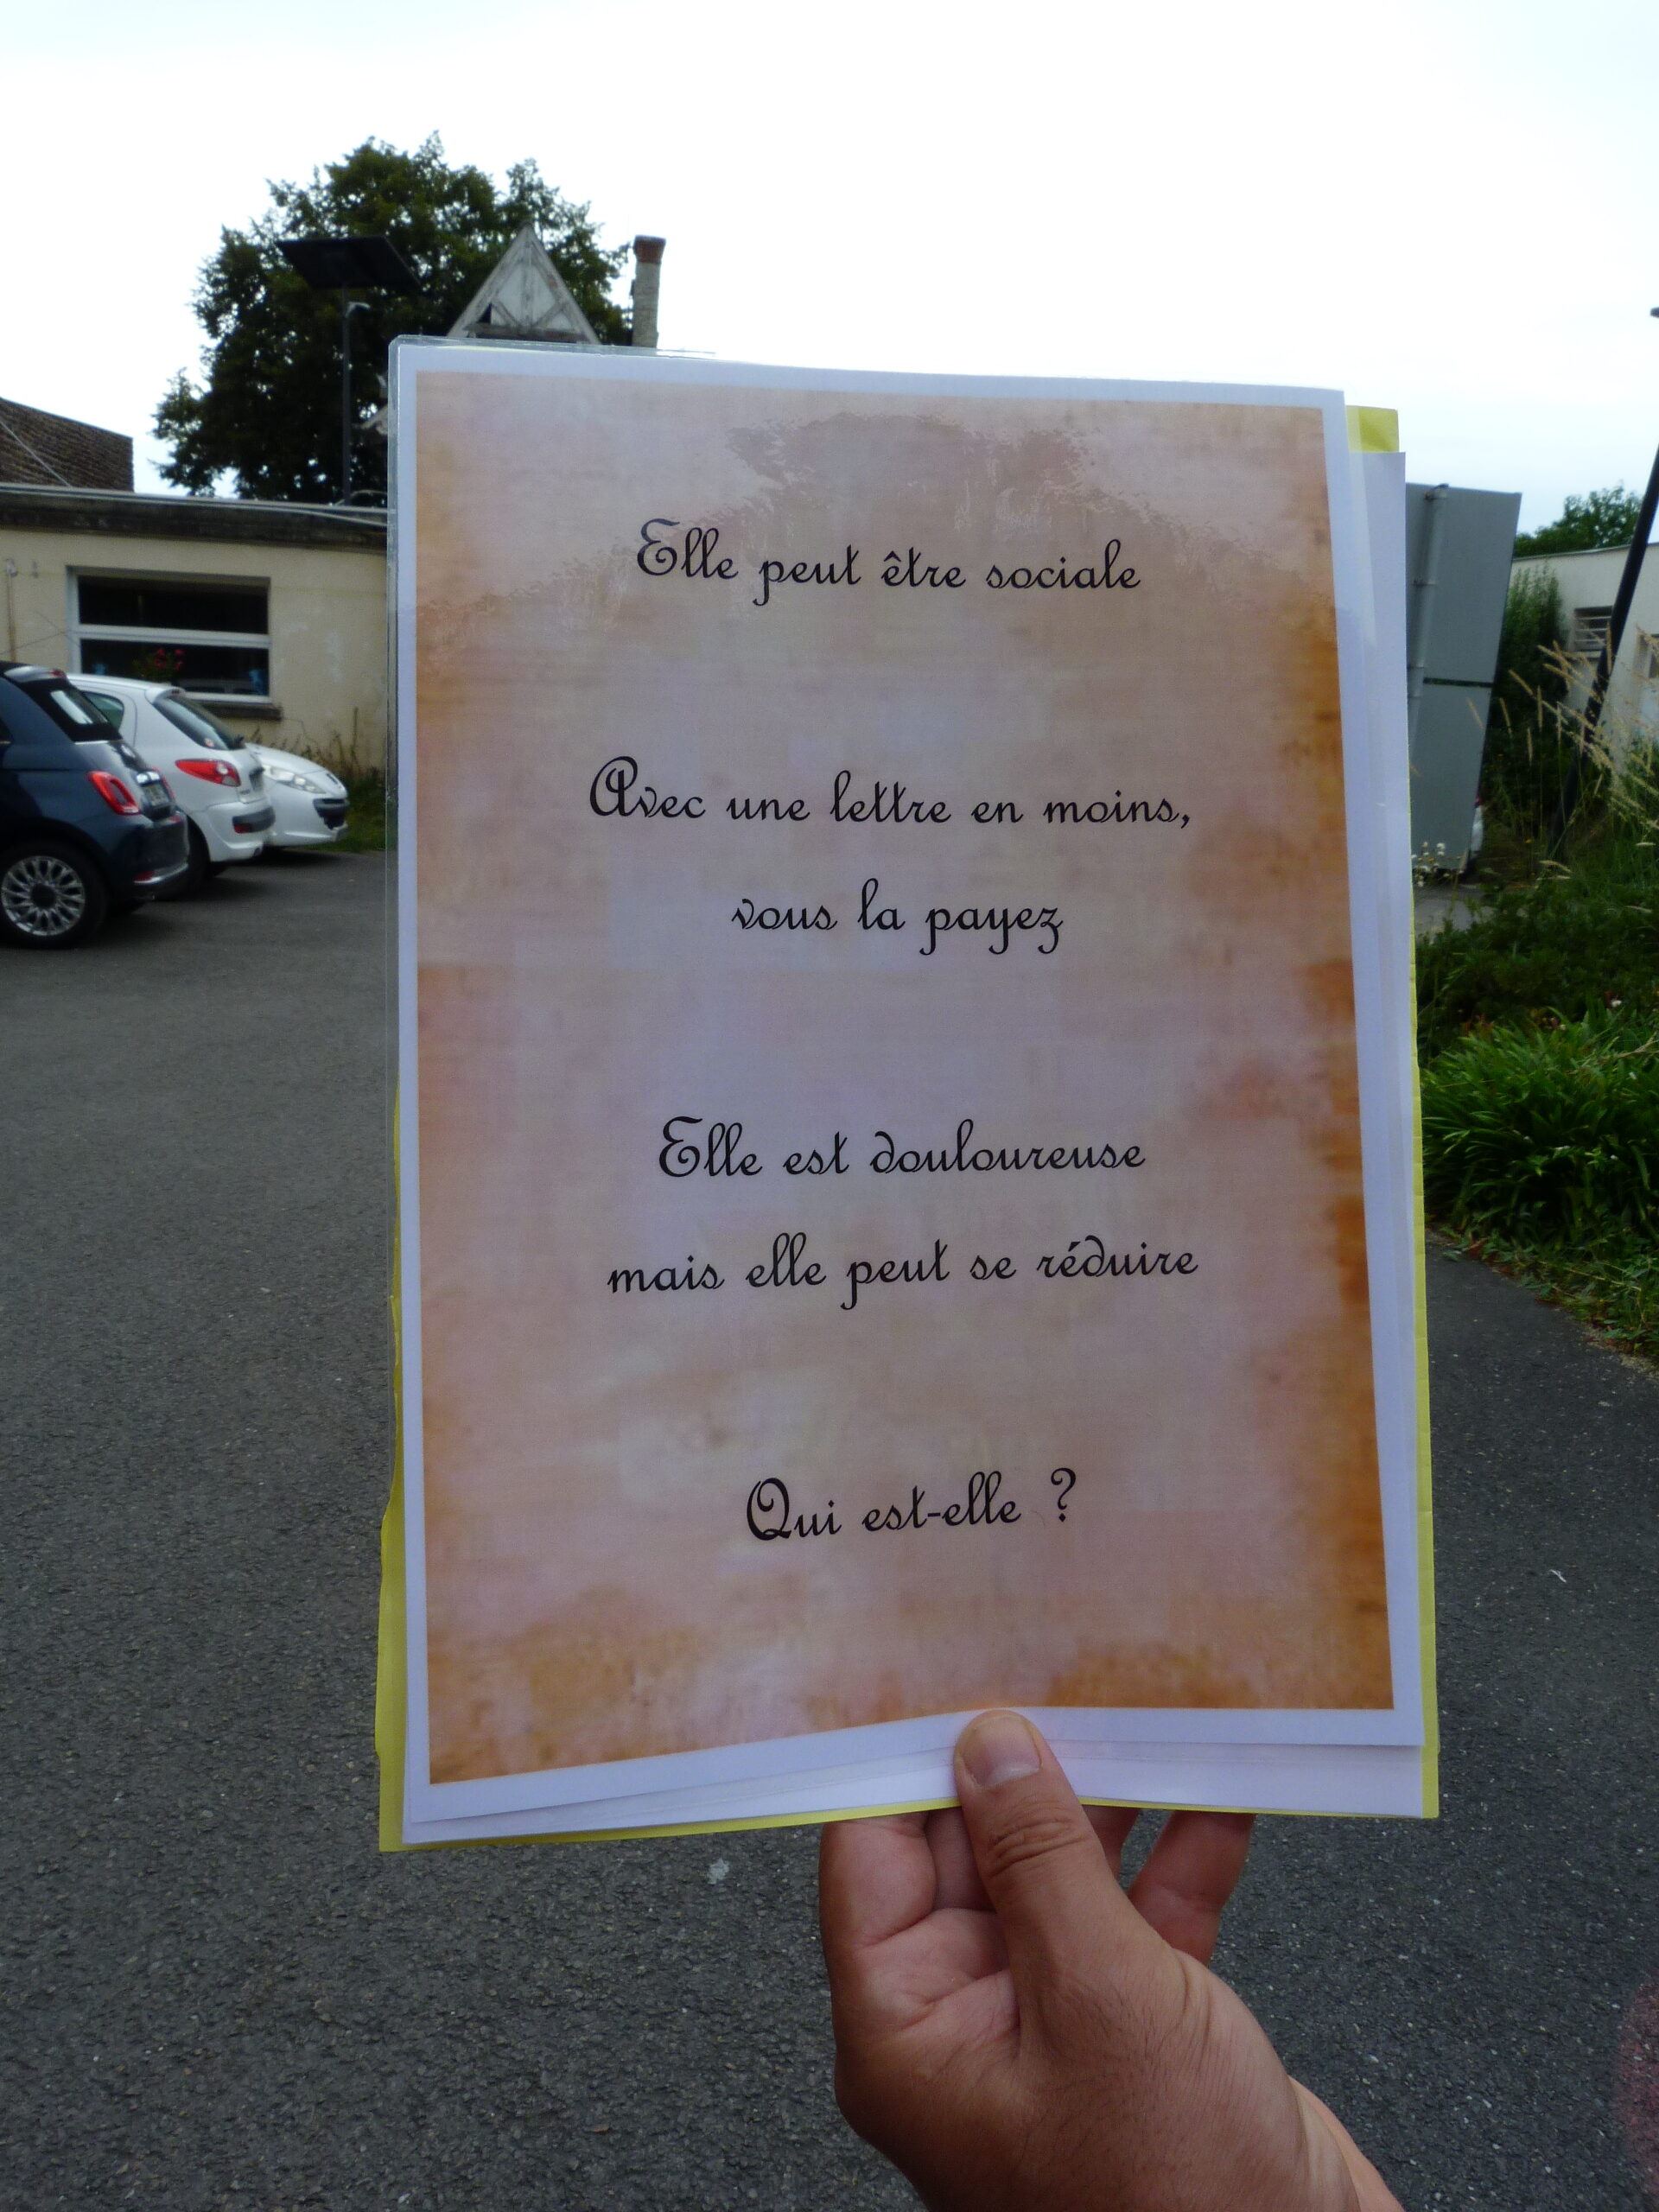 Elle peut être sociale
Avec une lettre en moins,
vous la payez
Elle est douloureuse
mais elle peut se réduire
Qui est-elle ?